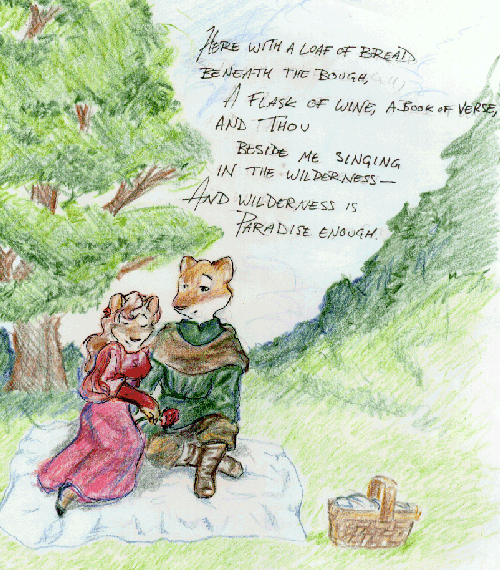 HERE WITH A LOAF OF BREAD
BENEATH THE BOUGH,
A FLASK OF WINE, A BOOK OF VERSE,
AND THOU
BESIDE ME SINGING
IN THE WILDERNESS—
AND WILDERNESS IS
PARADISE ENOUGH.